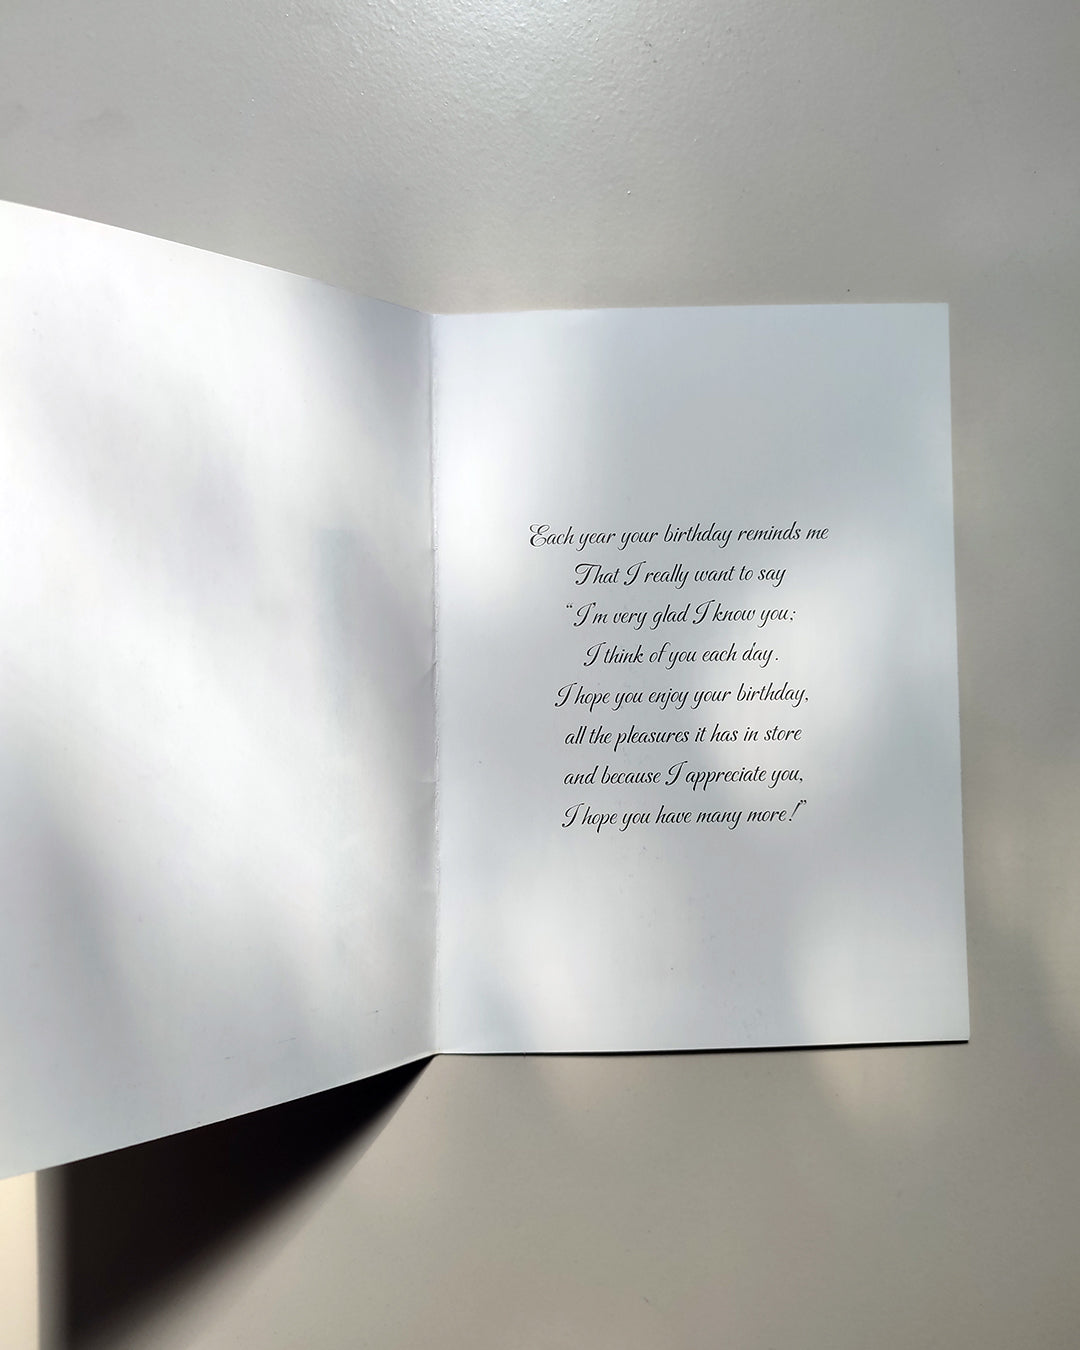 Each year your birthday reminds me
That I really want to say
“I'm very glad I know you;
I think of you each day.
I hope you enjoy your birthday,
all the pleasures it has in store
and because I appreciate you,
I hope you have many more!”